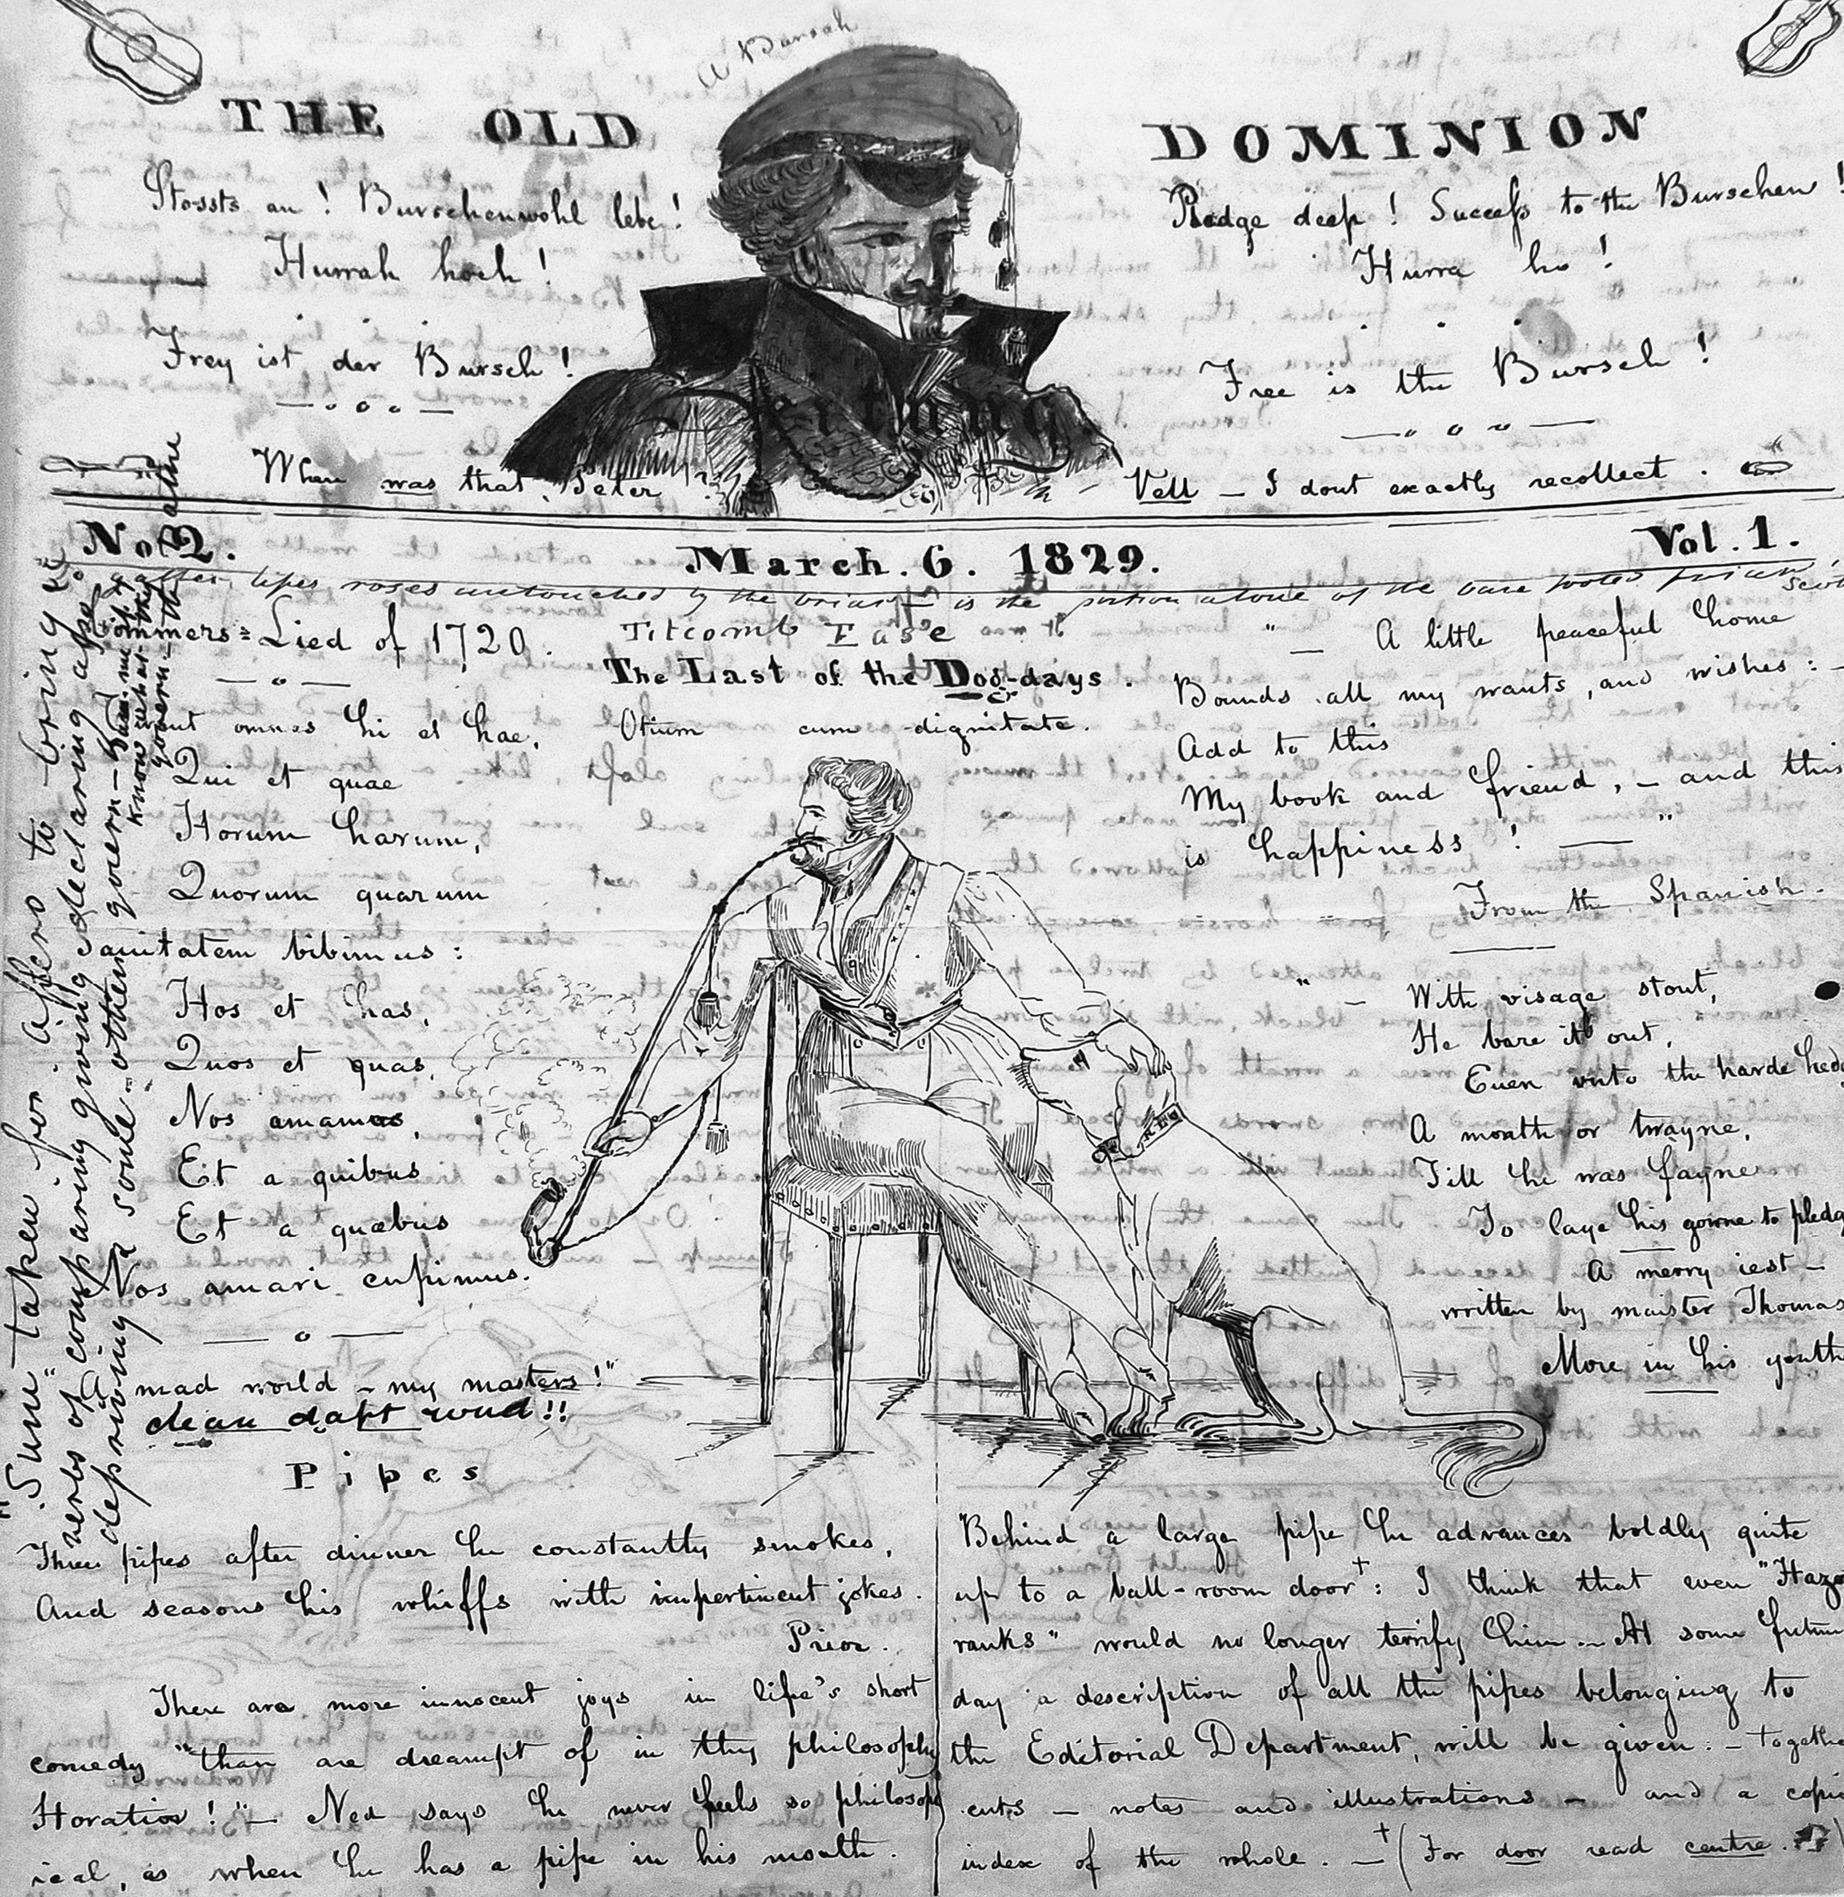 A Bursch
THE OLD DOMINION
Stossts an! Burschenwohl lebe!
Hurrah hoch!
Frey ist der Bursch!
Pledge deep! Success to the Burschen!
Hurra ho!
Free is the Bursch!
Zeitung
When was that, Peter?
Vell — I dont exactly recollect.
No. 2.
March. 6. 1829.
Vol. 1.
lipes roses untouched by the briar is the portion alone of the bare footed friar
Commers=Lied of 1720.
omnes hi et hae,
Qui et quae
Horum harum,
Quorum quarum
Sanitatem bibimus:
Hos et has,
Quos et quas,
Nos amamus,
Et a quibus
Et a quabus
Nos amari cupimus.
A mad world — my masters!"
clean daft wud!!
Titcomb Ease
The Last of the Dog-days.
Otium cum dignitate.
" — A little peaceful home
Bounds all my wants, and wishes: —
Add to this
My book and friend, — and this
is happiness! — "
From the Spanish.
" — With visage stout,
He bare it out,
Even unto the harde hedge
A month or twayne,
Till he was fayne
To laye his gowne to pledge
A merry iest —
written by maister Thomas
More in his youth
"Sume" taken for affero to bring &c
verbs of comparing giving declaring also
depriving a some — others govern — the Dative
govern
know
Pipes
Three pipes after dinner he constantly smokes,
And seasons his whiffs with impertinent jokes.
Prior.
There are more innocent joys in life's short
comedy "than are dreampt of in thy philosophy
Horatio!" — Ned says he never feels so philosoph
ical, as when he has a pipe in his mouth.
Behind a large pipe he advances boldly quite
up to a ball-room door†: I think that even "Hazo
ranks" would no longer terrify him — At some future
day a description of all the pipes belonging to
the Editorial Department, will be given: — togethe
cuts — notes and illustrations — and a copi
index of the whole. — †(For door read centre.